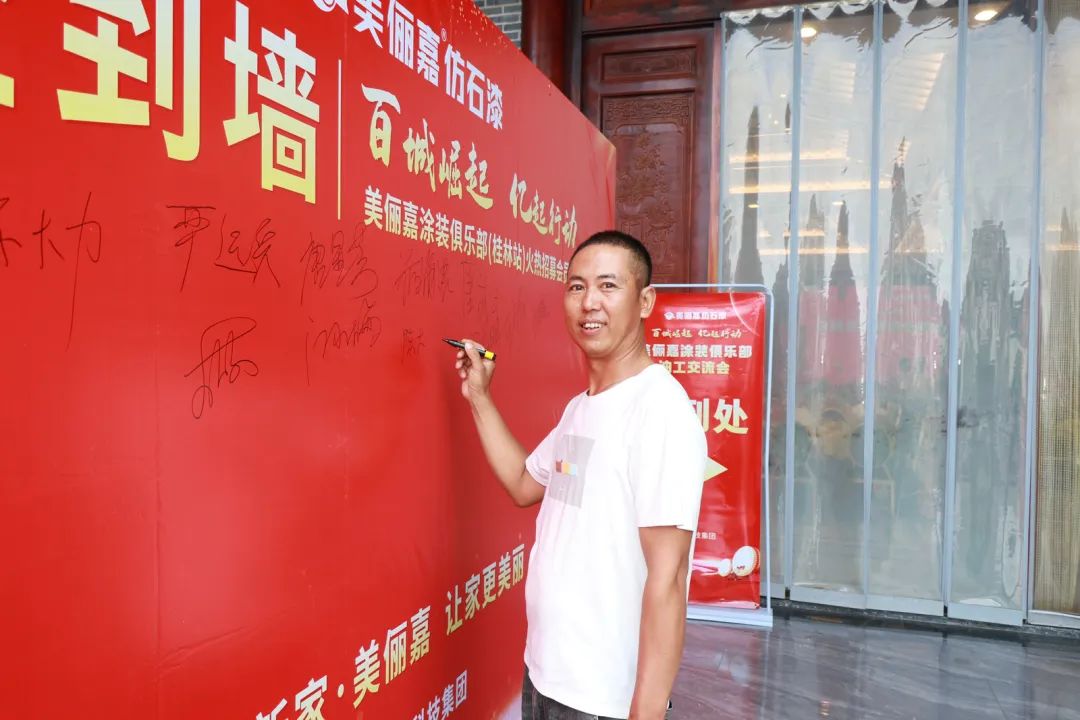 到墙
美俪嘉®仿石漆
百城崛起 亿起行动
美俪嘉涂装俱乐部(桂林站)火热招募会
大力
新家·美俪嘉 让家更美丽
科技集团
美俪嘉仿石漆
百城崛起 亿起行动
美俪嘉涂装俱乐部
油工交流会
到处
技集团